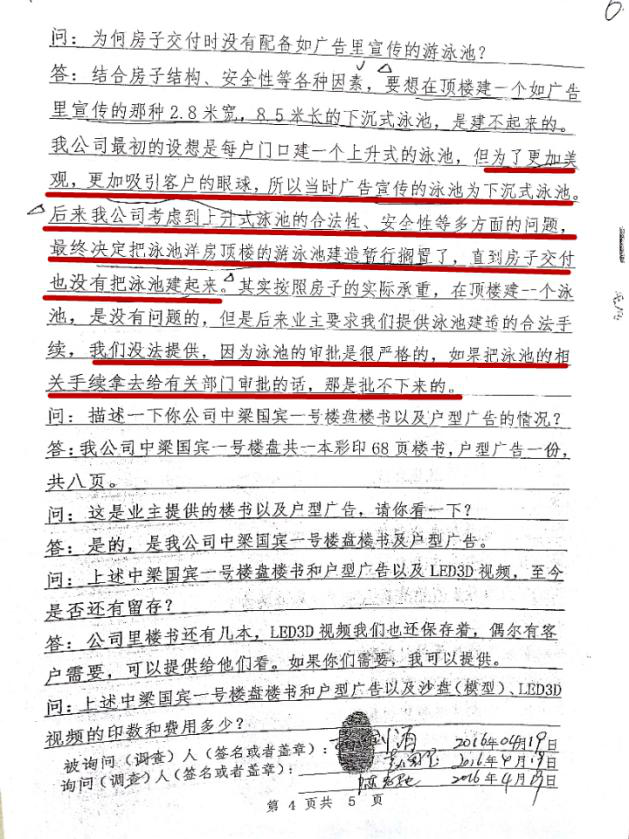 问：为何房子交付时没有配备如广告里宣传的游泳池？
答：结合房子结构、安全性等各种因素，要想在顶楼建一个如广告
里宣传的那种2.8米宽，8.5米长的下沉式泳池，是建不起来的。
我公司最初的设想是每户门口建一个上升式的泳池，但为了更加美
观，更加吸引客户的眼球，所以当时广告宣传的泳池为下沉式泳池。
后来我公司考虑到上升式泳池的合法性、安全性等多方面的问题，
最终决定把泳池洋房顶楼的游泳池建造暂行搁置了，直到房子交付
也没有把泳池建起来。其实按照房子的实际承重，在顶楼建一个泳
池，是没有问题的，但是后来业主要求我们提供泳池建造的合法手
续，我们没法提供，因为泳池的审批是很严格的，如果把泳池的相
关手续拿去给有关部门审批的话，那是批不下来的。
问：描述一下你公司中梁国宾一号楼盘楼书以及户型广告的情况？
答：我公司中梁国宾一号楼盘共一本彩印68页楼书，户型广告一份，
共八页。
问：这是业主提供的楼书以及户型广告，请你看一下？
答：是的，是我公司中梁国宾一号楼盘楼书及户型广告。
问：上述中梁国宾一号楼盘楼书和户型广告以及LED3D视频，至今
是否还有留存？
答：公司里楼书还有几本，LED3D视频我们也还保存着，偶尔有客
户需要，可以提供给他们看。如果你们需要，我可以提供。
问：上述中梁国宾一号楼盘楼书和户型广告以及沙盘（模型）、LED3D
视频的印数和费用多少？
被询问（调查）人（签名或者盖章）： 2016年04月19日
询问（调查）人（签名或者盖章）： 2016年4月19日
2016年4月19日
第 4 页共 5 页